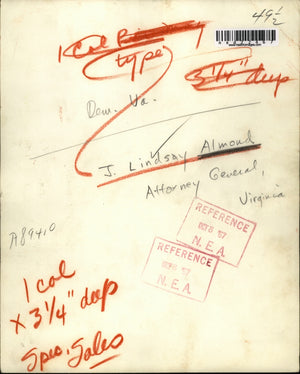 49½
1 Col
type
3¼" deep
Dem. Va.
J. Lindsay Almond
Attorney General,
Virginia
REFERENCE
N.E.A.
REFERENCE
N.E.A.
A89410
1 col
x 3¼" deep
Spec. Sales